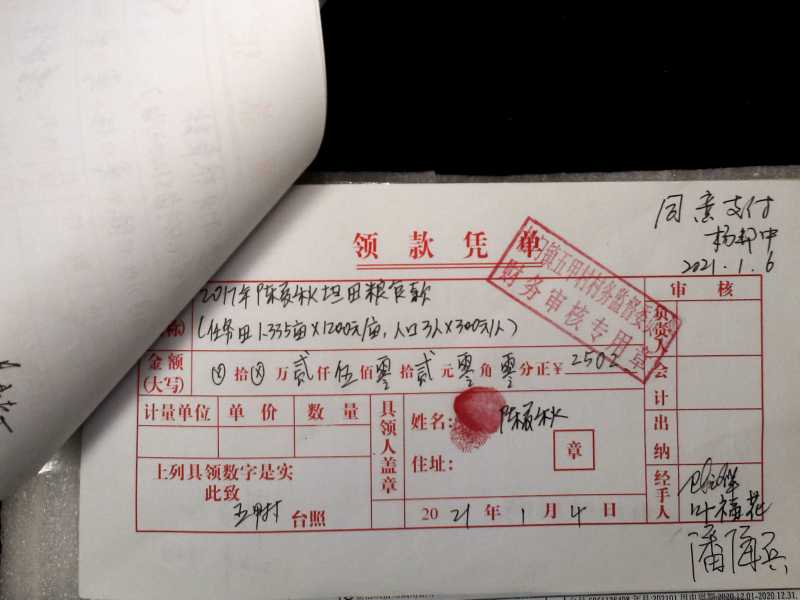 领款凭单
同意支付
2021.1.6
财务审核专用章
2017年陈夜秋坦田粮食款
(任务田1.335亩×1200元/亩,人口3人×300元/人)
审核
负责人
金额(大写) ⊗拾⊗万贰仟伍佰零拾贰元零角零分正¥2502
会计
计量单位 单价 数量
具领人盖章
姓名: 陈夜秋
出纳
住址:
章
上列具领数字是实
此致
五甲村 台照
2021年1月4日
经手人
叶福花